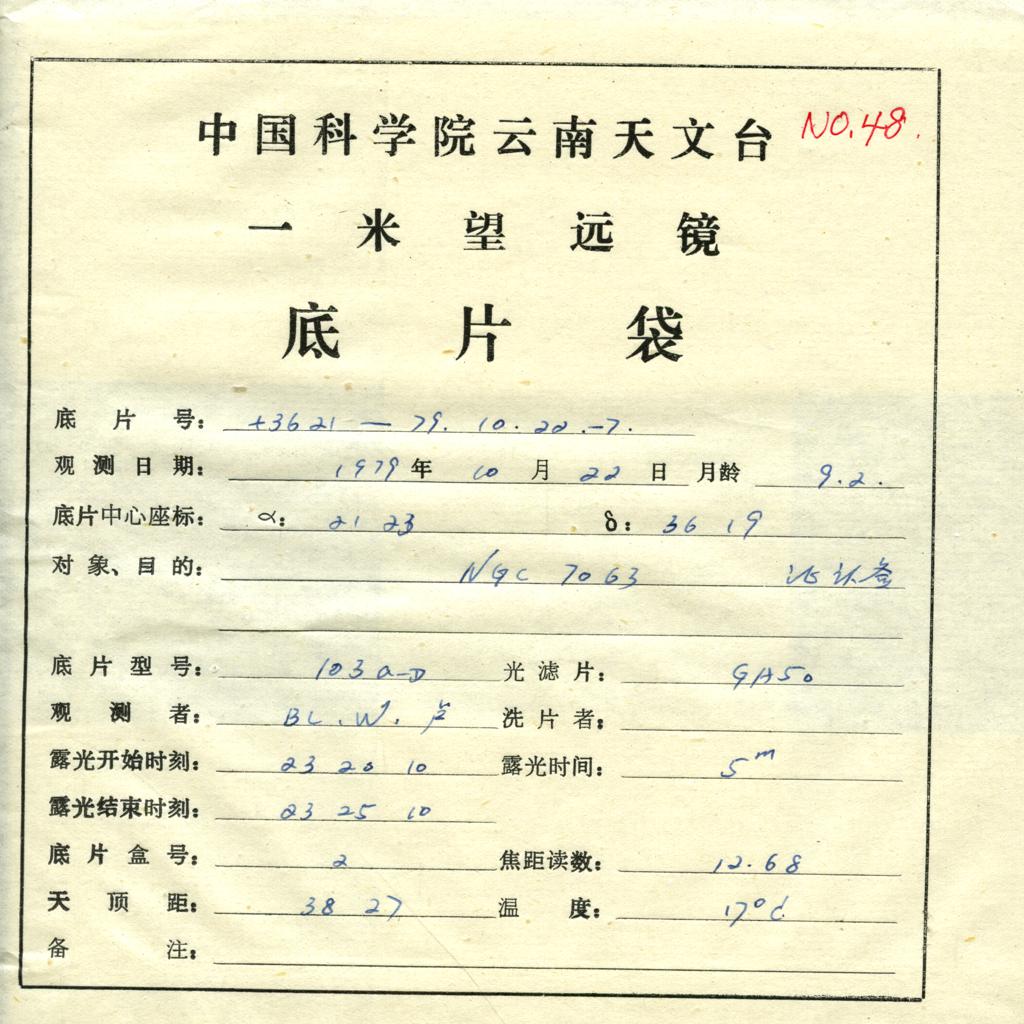 中国科学院云南天文台 NO.48.
一米望远镜
底片袋
底片号: +3621—79.10.22.-7.
观测日期: 1979年 10月 22日 月龄 9.2.
底片中心座标: α: 21 23 δ: 36 19
对象、目的: NGC 7063
底片型号: 103a-D 光滤片: GH50
观测者: BL.W. 洗片者:
露光开始时刻: 23 20 10 露光时间: 5m
露光结束时刻: 23 25 10
底片盒号: 2 焦距读数: 12.68
天顶距: 38 27 温度: 17°C
备注: